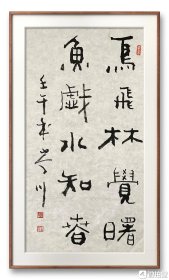 鳥飛林覺曙
魚戲水知萅
壬午年